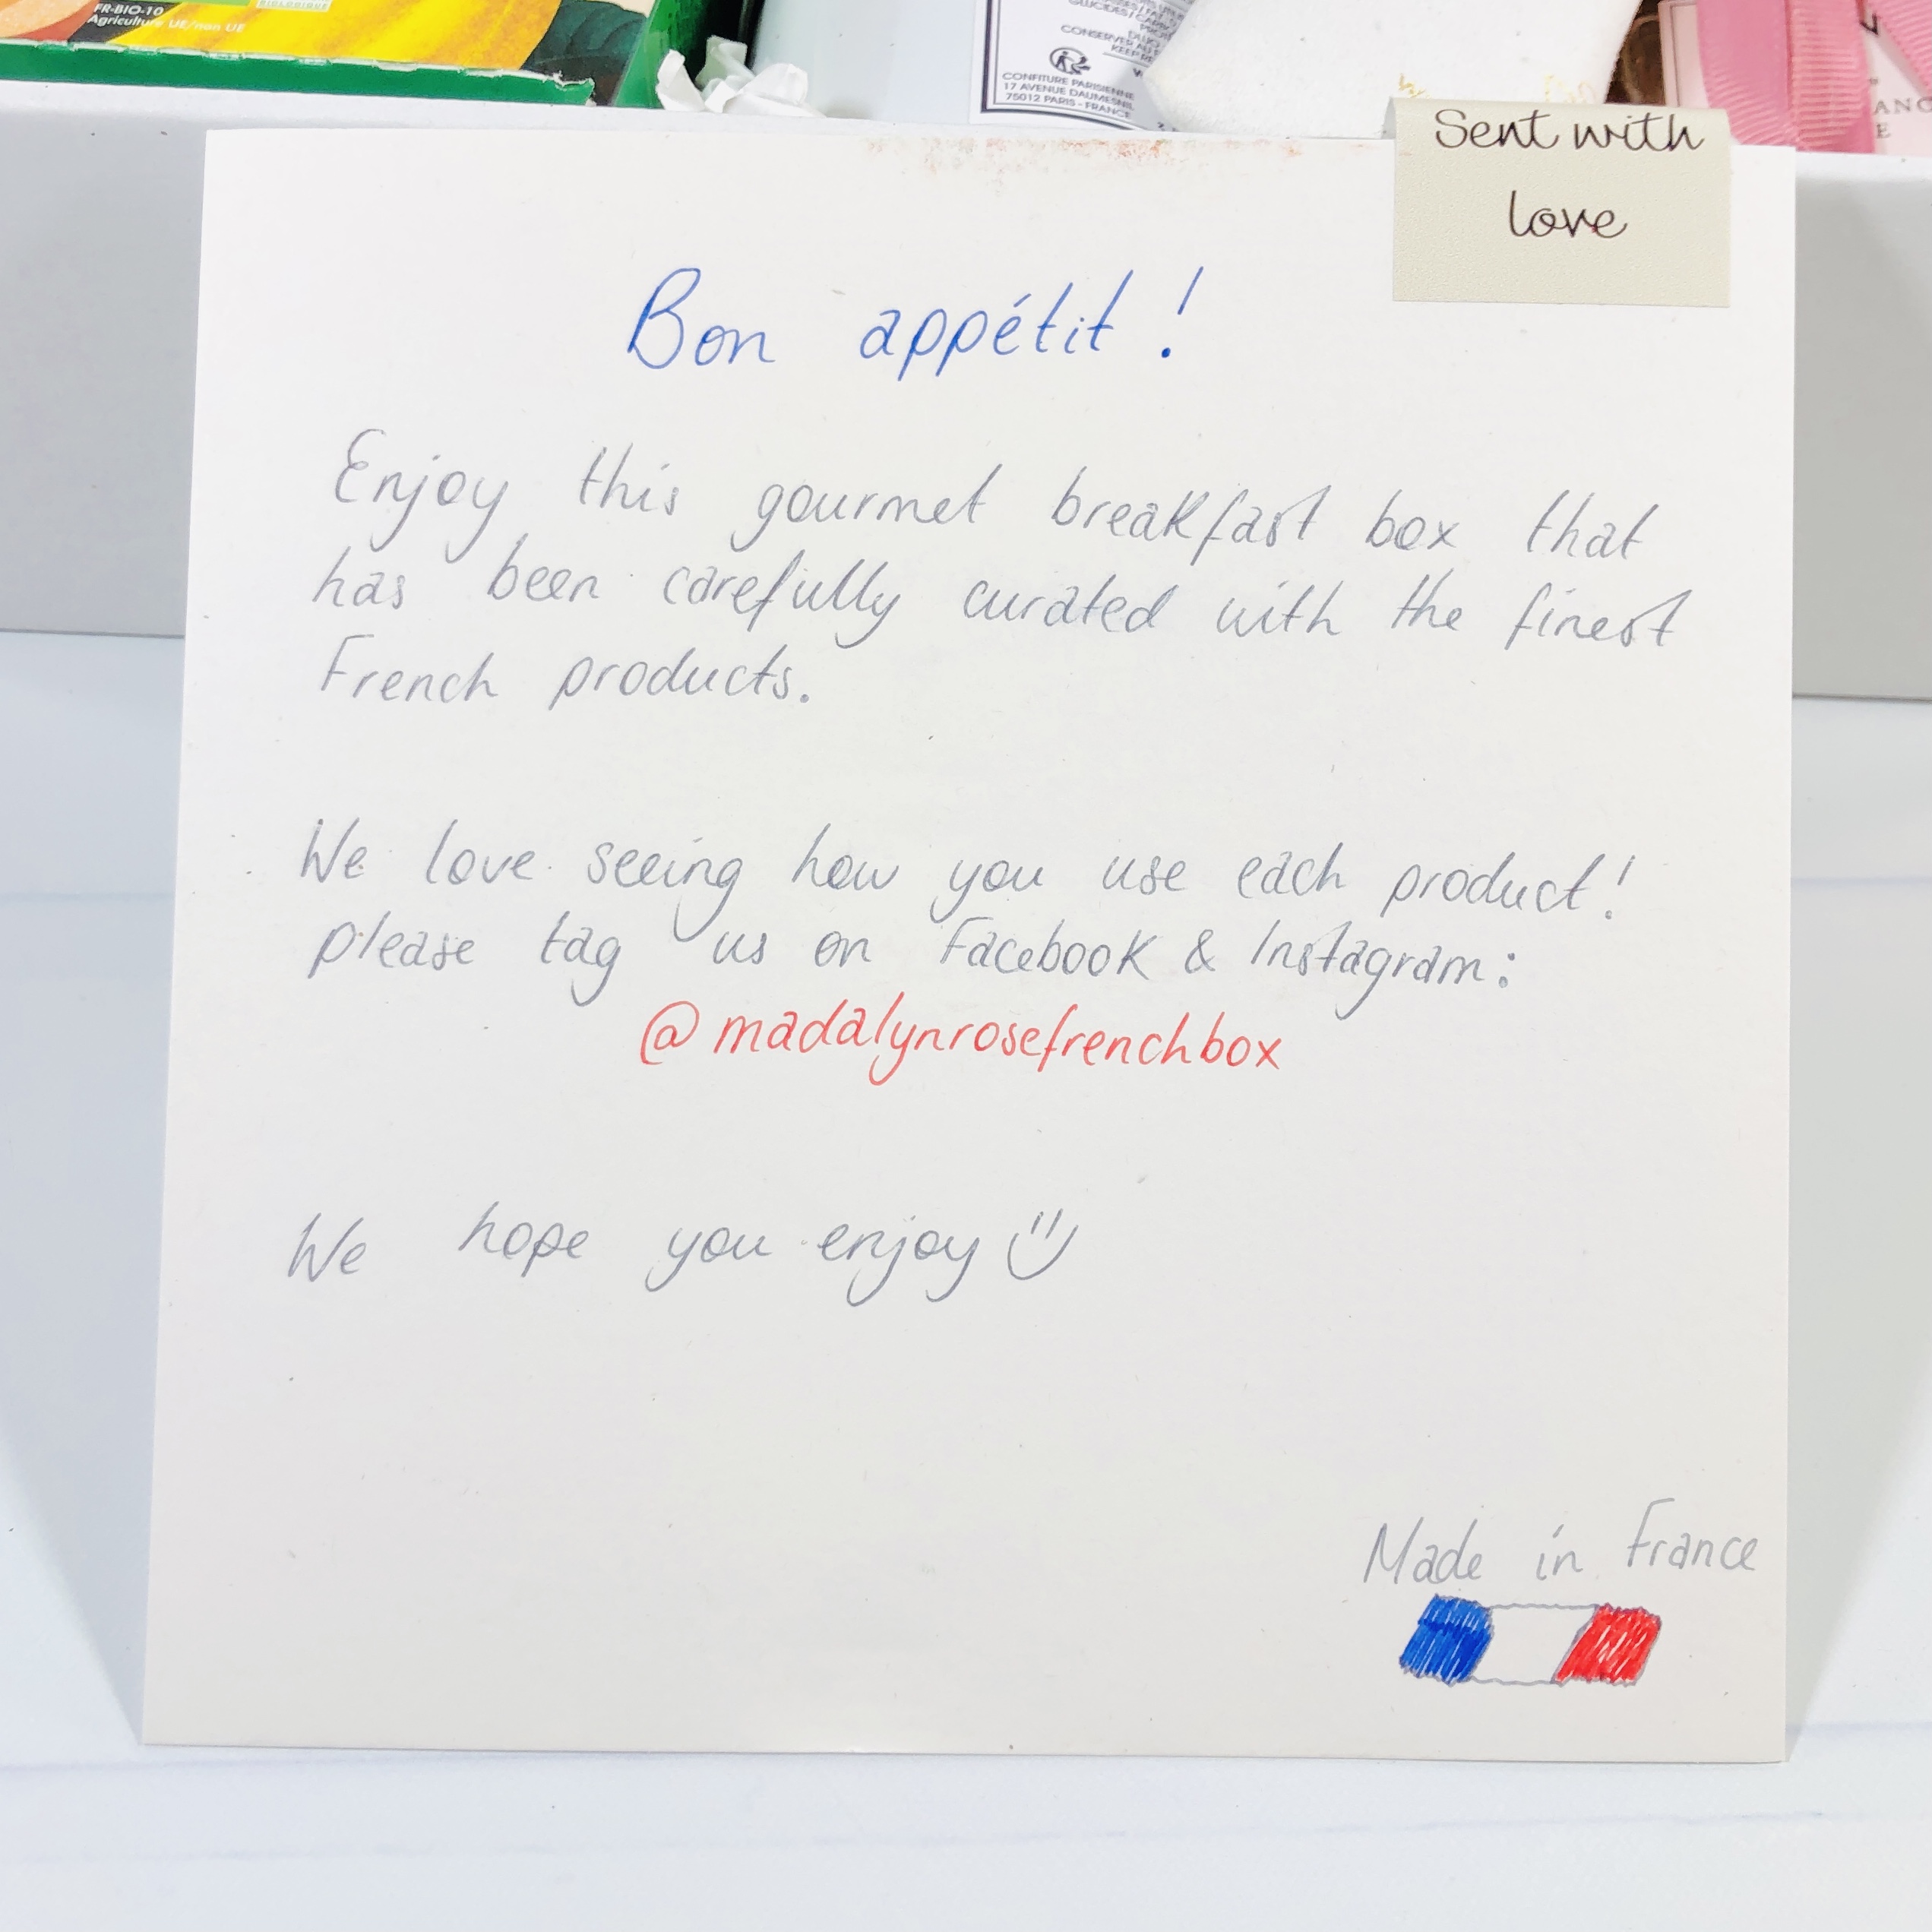 FR-BIO-10
Agriculture UE/non UE
BIOLOGIQUE
GLUCIDES/
CONSERVER AU
KEEP RE
CONFITURE PARISIENNE
17 AVENUE DAUMESNIL
75012 PARIS - FRANCE
Sent with
love
Bon appétit !
Enjoy this gourmet breakfast box that
has been carefully curated with the finest
French products.
We love seeing how you use each product!
please tag us on Facebook & Instagram:
@madalynrosefrenchbox
We hope you enjoy
Made in France